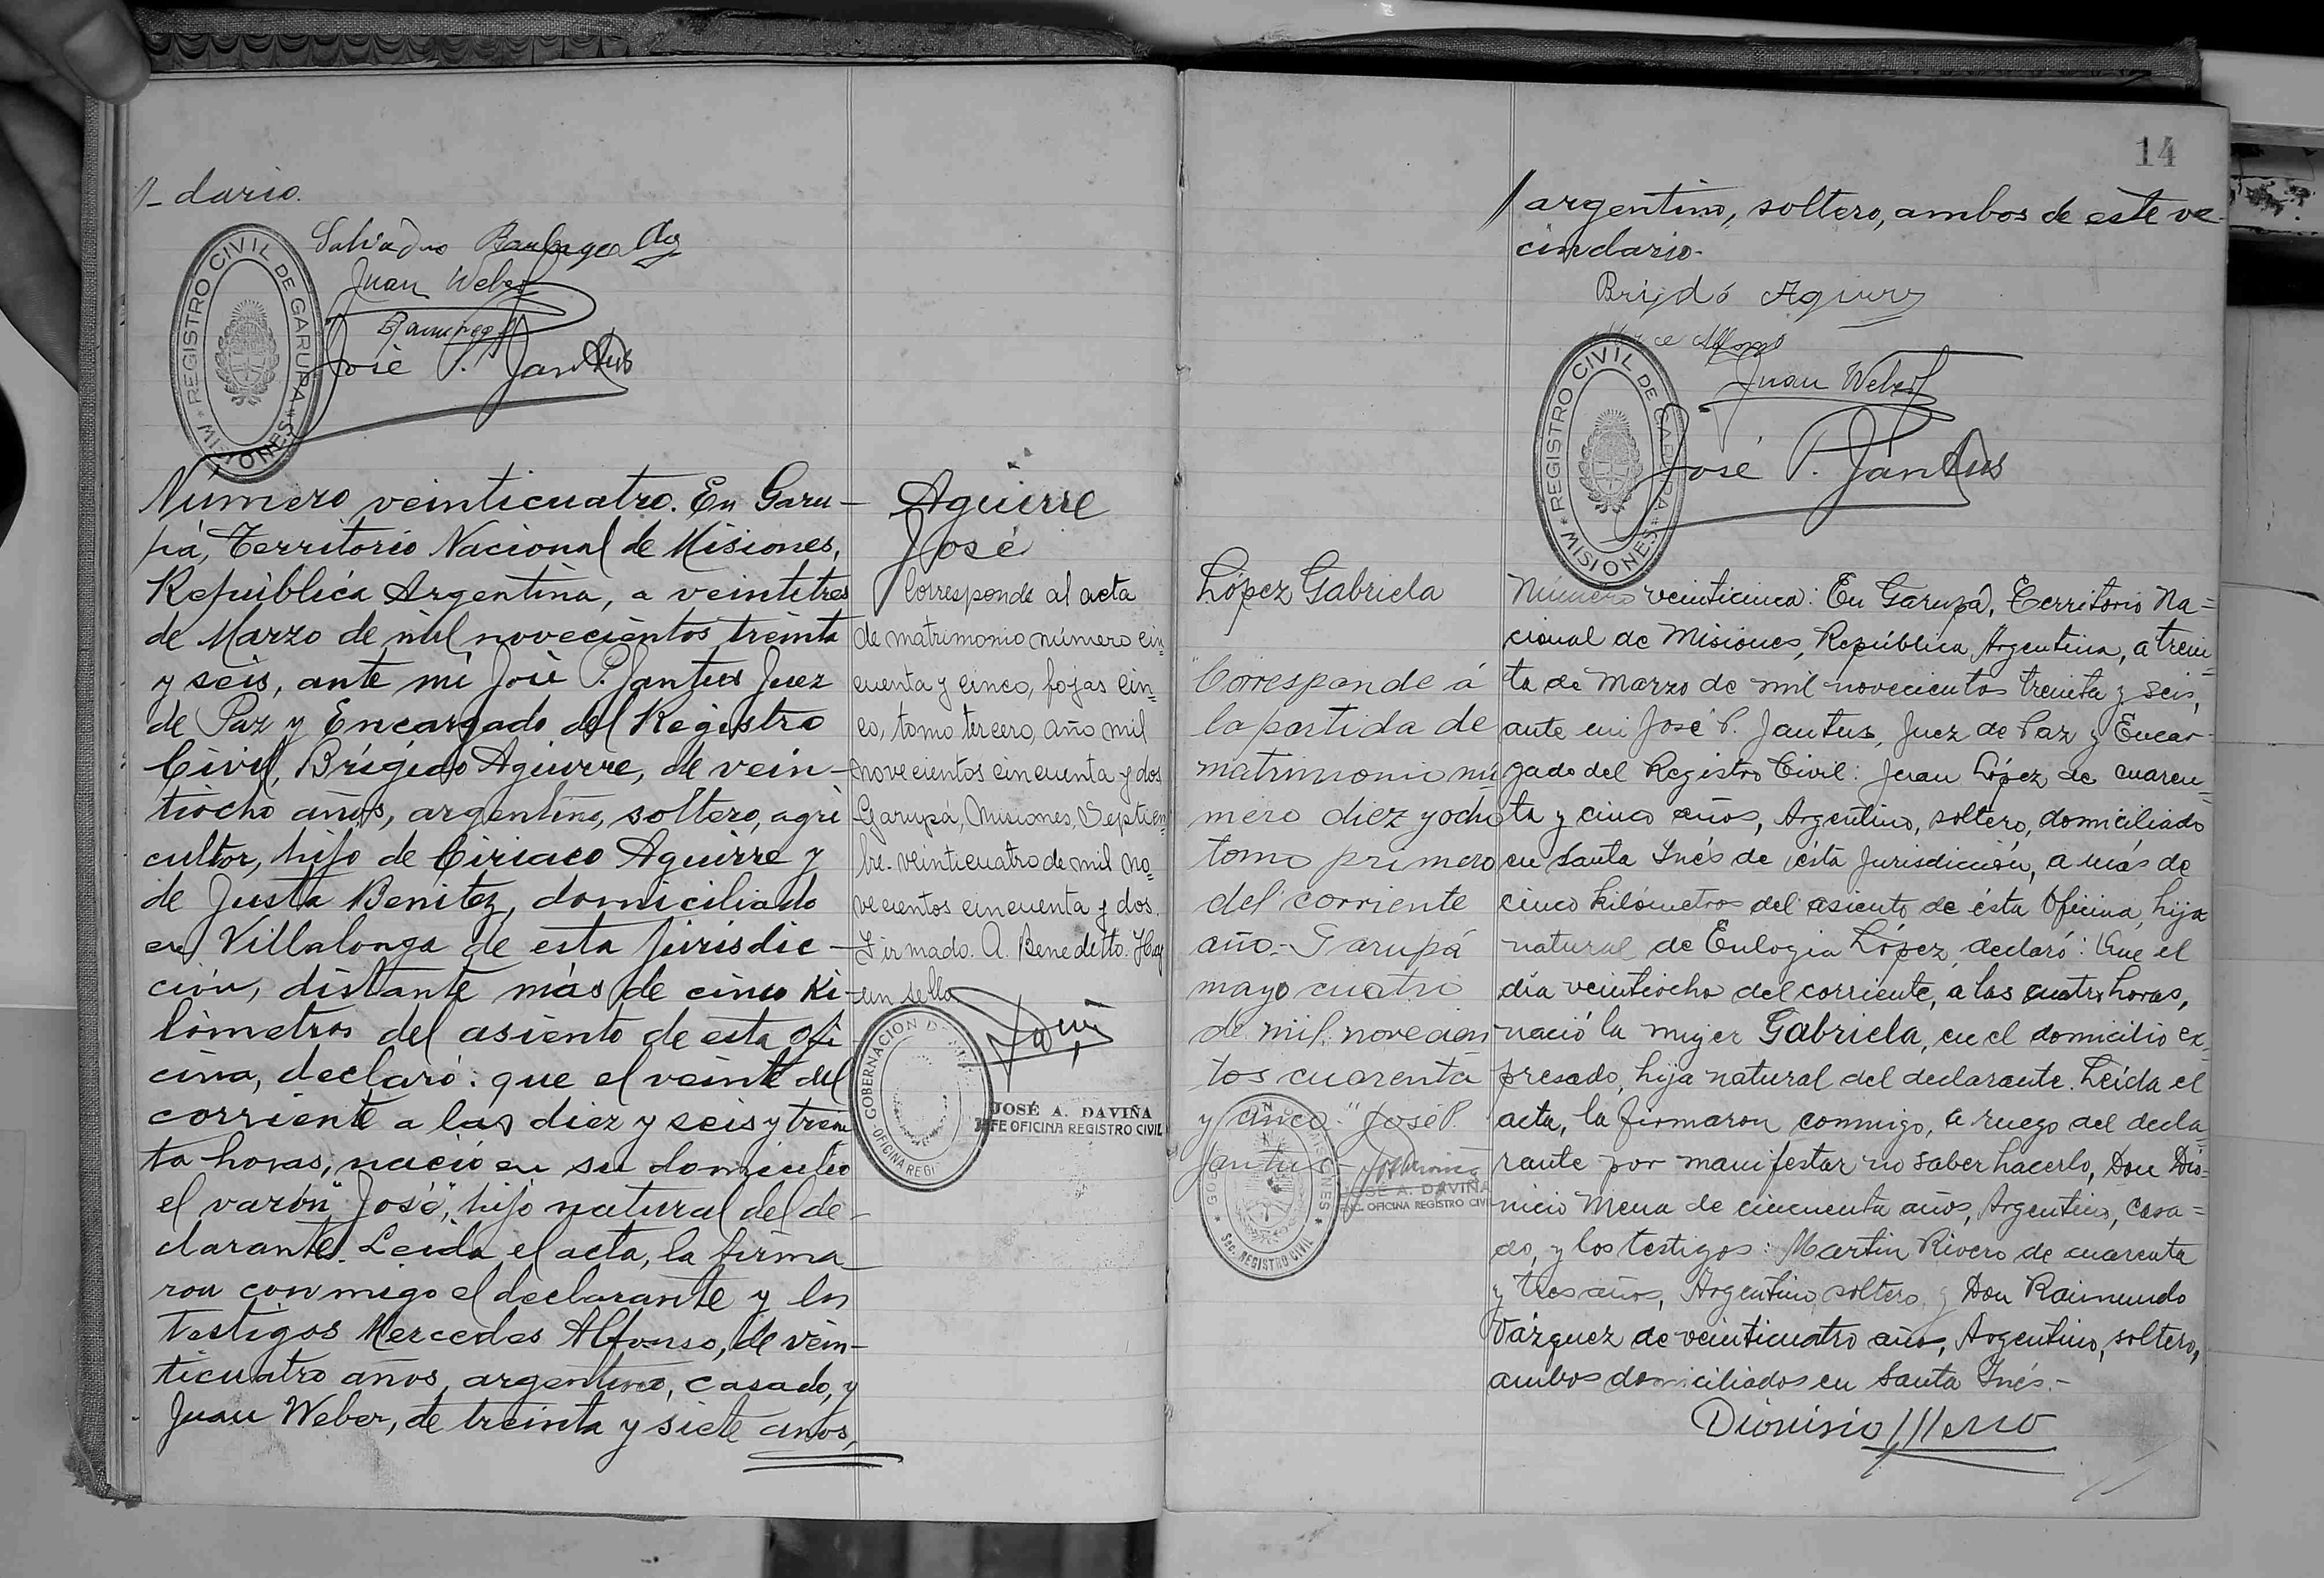 dario.
Juan Weber
José P. Jantus
REGISTRO CIVIL DE GARUPA
MISIONES
Número veinticuatro. En Garu-
pá, Territorio Nacional de Misiones,
República Argentina, a veintitres
de Marzo de mil novecientos treinta
y seis, ante mi José P. Jantus Juez
de Paz y Encargado del Registro
Civil, Brígido Aguirre, de vein-
tiocho años, argentino, soltero, agri
cultor, hijo de Ciriaco Aguirre y
de Justa Benitez, domiciliado
en Villalonga de esta jurisdic-
ción, distante más de cinco ki-
lómetros del asiento de esta ofi
cina, declaró: que el veinte del
corriente a las diez y seis y trein
ta horas, nació en su domicilio
el varón "José", hijo natural del de-
clarante. Leida el acta, la firma-
ron conmigo el declarante y los
testigos Mercedes Alfonso, de vein-
ticuatro años, argentino, casado, y
Juan Weber, de treinta y siete años,
Aguirre
José
Corresponde al acta
de matrimonio número cin=
cuenta y cinco, fojas cin=
co, tomo tercero, año mil
novecientos cincuenta y dos
Garupá, Misiones, Septiem=
bre veinticuatro de mil no=
vecientos cincuenta y dos.
Firmado. A. Benedetto. Hay
un sello
GOBERNACION D
OFICINA REGI
JOSÉ A. DAVIÑA
JEFE OFICINA REGISTRO CIVIL
14
argentino, soltero, ambos de este ve-
cindario.
Brijdó Aguirre
Juan Weber
José P. Jantus
REGISTRO CIVIL DE GARUPA
MISIONES
López Gabriela
"Corresponde á
la partida de
matrimonio nú
mero diez y ocho
tomo primero
del corriente
año.- Garupá
mayo cuatro
de mil novecien
tos cuarenta
y cinco." José P.
Jantus-
JOSÉ A. DAVIÑA
ENC. OFICINA REGISTRO CIVIL
SEC. REGISTRO CIVIL
Número veinticinco: En Garupá, Territorio Na=
cional de Misiones, República Argentina, a trein=
ta de Marzo de mil novecientos treinta y seis,
ante mi José P. Jantus, Juez de Paz y Encar-
gado del Registro Civil: Juan López de cuaren=
ta y cinco años, Argentino, soltero, domiciliado
en Santa Inés de ésta Jurisdicción, a más de
cinco kilómetros del asiento de ésta Oficina, hijo
natural de Eulogia López, declaró: Que el
día veintiocho del corriente, a las cuatro horas,
nació la mujer Gabriela, en el domicilio ex=
presado, hija natural del declarante. Leída el
acta, la firmaron conmigo, a ruego del decla=
rante por manifestar no saber hacerlo, Don Dio=
nicio Mena de cincuenta años, Argentino, casa=
do, y los testigos: Martin Rivero de cuarenta
y tres años, Argentino, soltero y Don Raimundo
Vázquez de veinticuatro años, Argentino, soltero,
ambos domiciliados en Santa Inés.-
Dionisio Meno